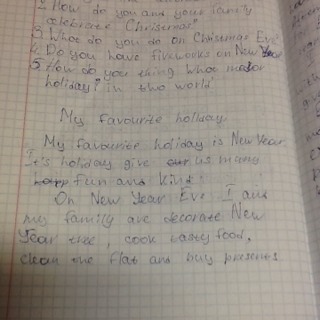 2 How do you and your family
celebrate Christmas?
3 Whot do you do on Christmas Eve
4. Do you have fireworks on New Year
5 How do you thing whot major
holiday? in two world
My favourite holiday.
My favourite holiday is New Year
It's holiday give us mang
fun and kind.
On New Year Eve I and
my family are decorate New
Year tree, cook tasty food,
clean the flat and buy presents